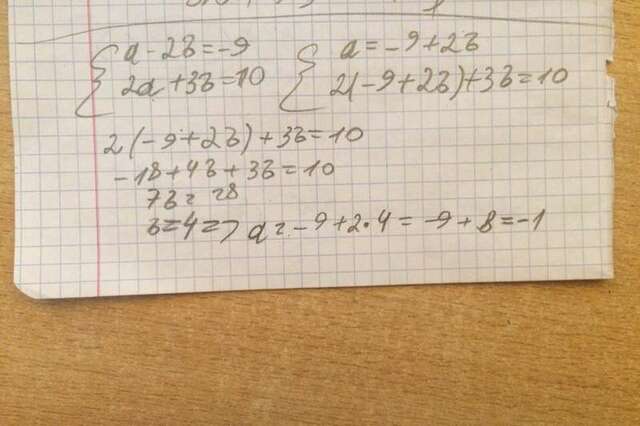 a - 2b = -9
2a + 3b = 10
a = -9 + 2b
2(-9 + 2b) + 3b = 10
2(-9 + 2b) + 3b = 10
-18 + 4b + 3b = 10
7b = 28
b = 4 => a = -9 + 2·4 = -9 + 8 = -1